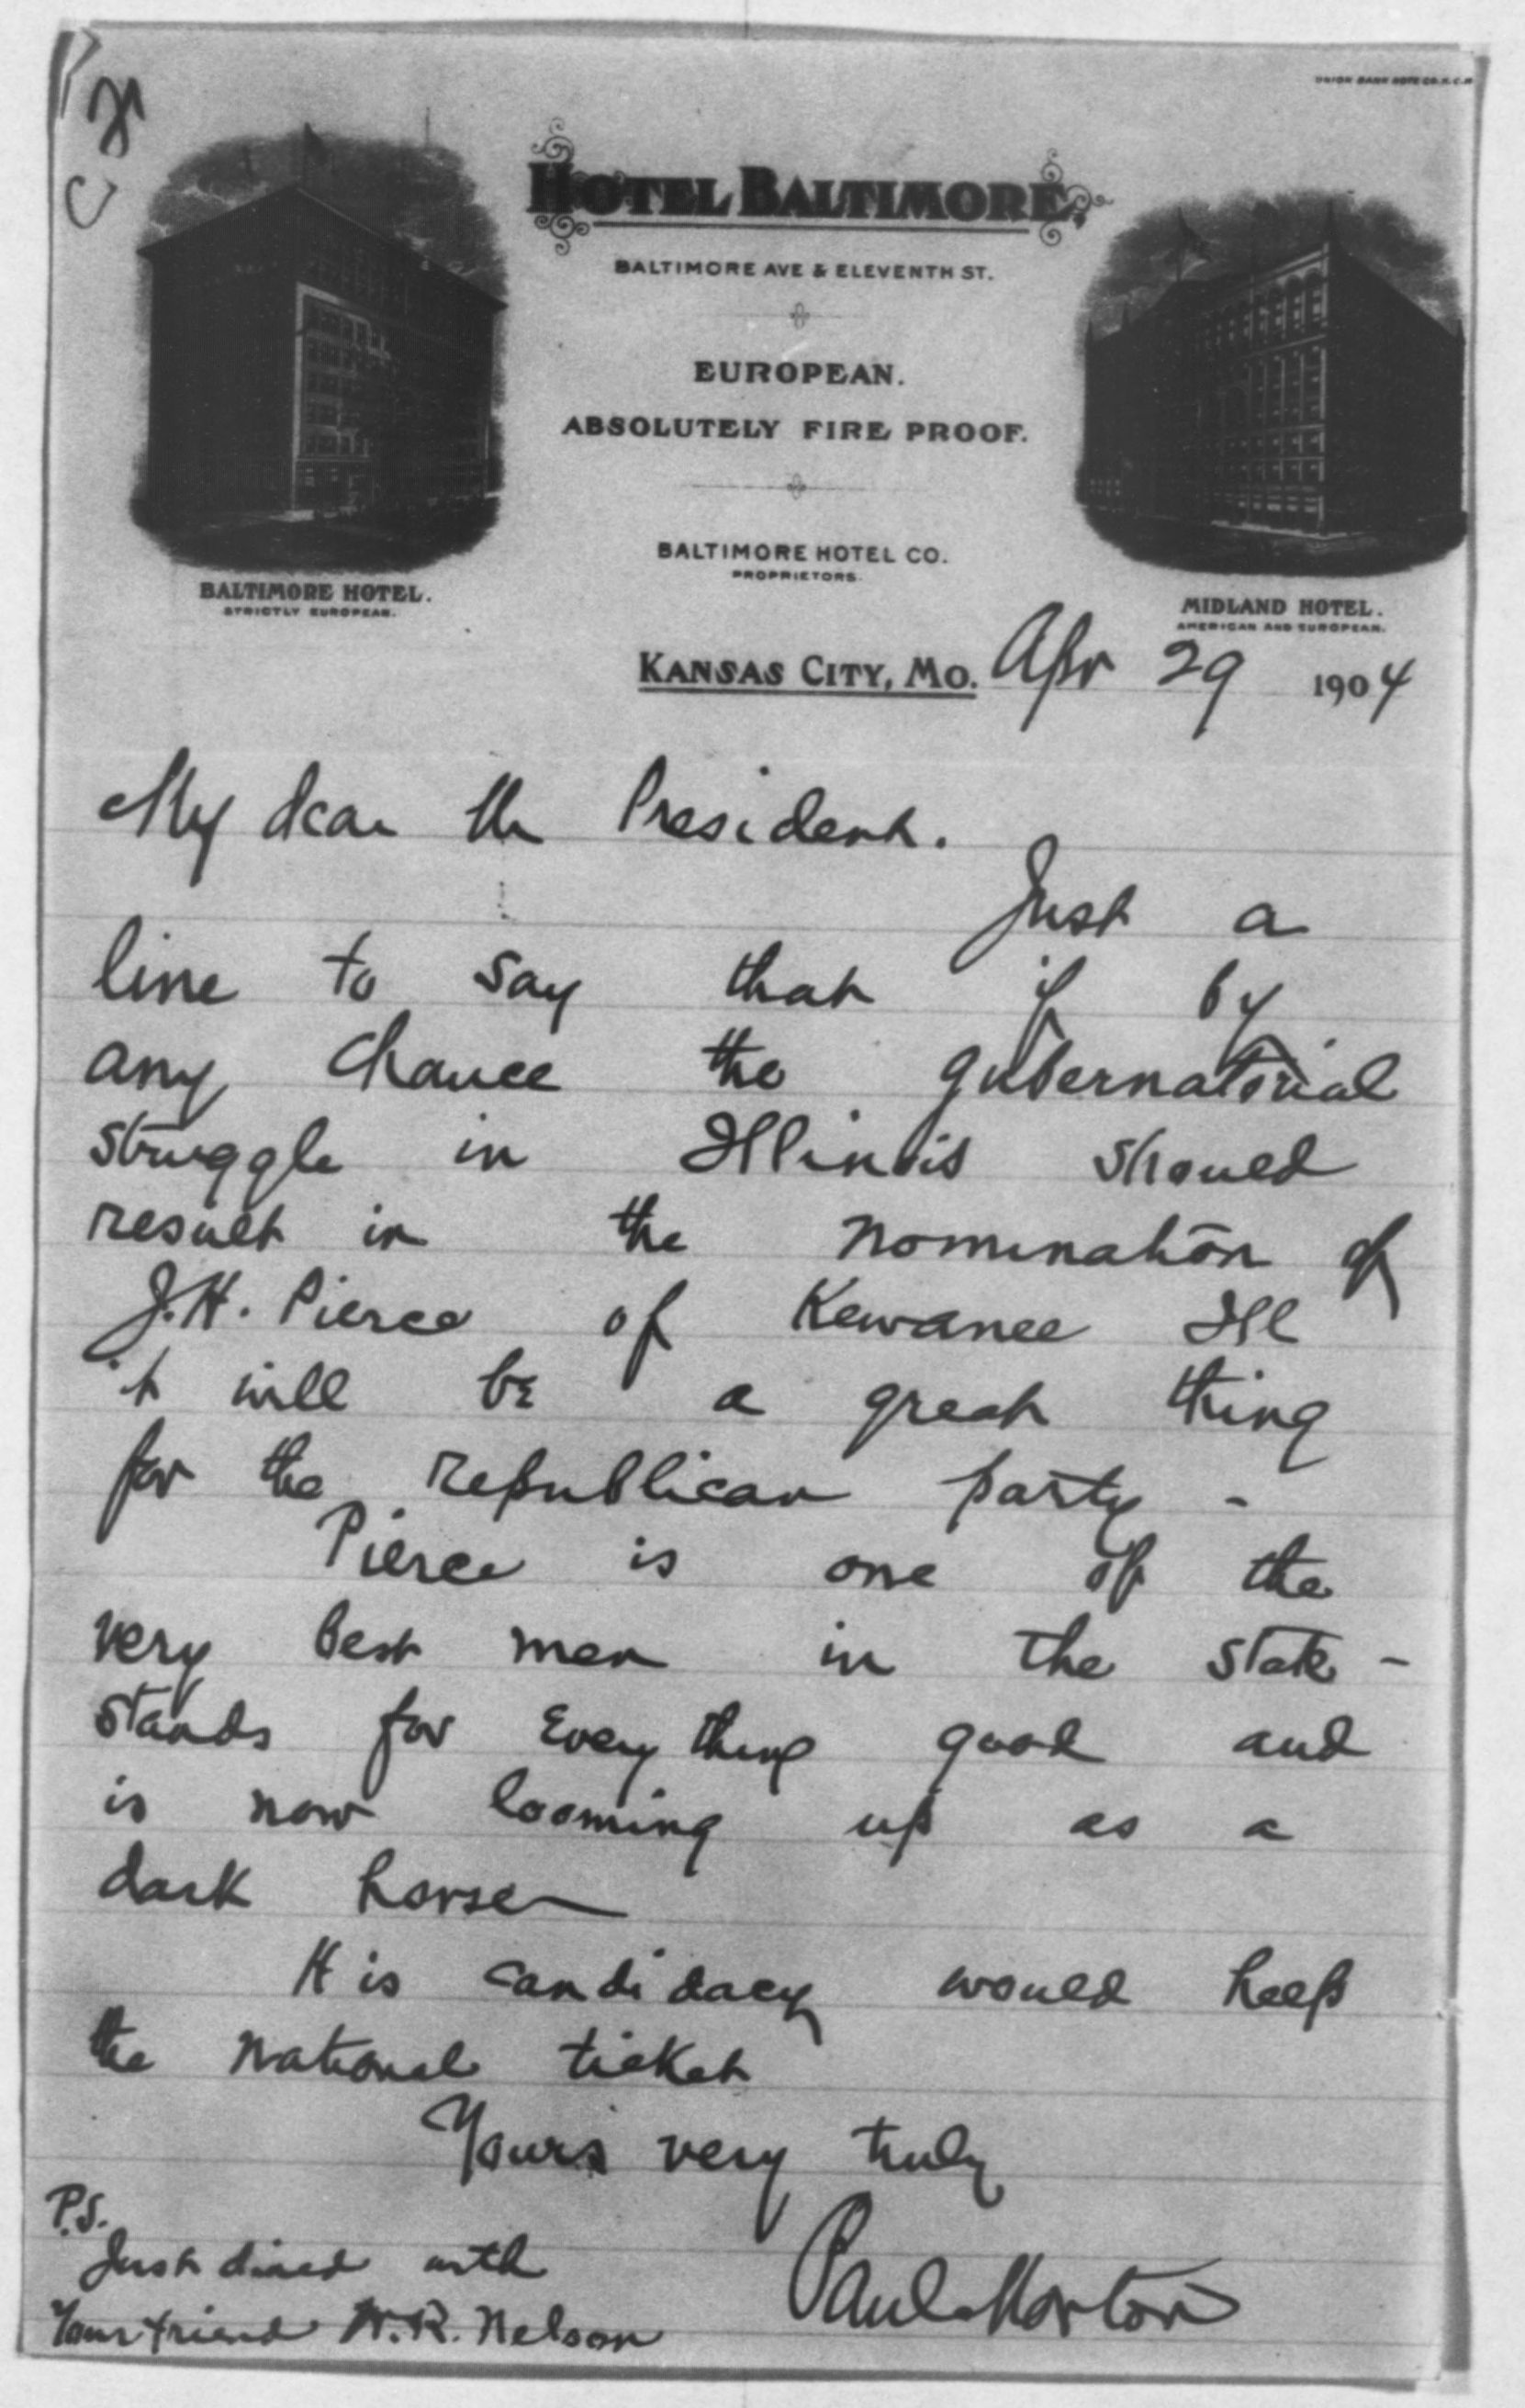 UNION BANK NOTE CO. K.C.M
HOTEL BALTIMORE.
BALTIMORE AVE & ELEVENTH ST.
EUROPEAN.
ABSOLUTELY FIRE PROOF.
BALTIMORE HOTEL CO.
PROPRIETORS.
BALTIMORE HOTEL.
STRICTLY EUROPEAN.
MIDLAND HOTEL.
AMERICAN AND EUROPEAN.
KANSAS CITY, MO. Apr 29 1904
My dear Mr President.
Just a
line to say that if by
any chance the gubernatorial
struggle in Illinois should
result in the nomination of
J.H. Pierce of Kewanee Ill
it will be a great thing
for the republican party -
Pierce is one of the
very best men in the state -
stands for Every thing good and
is now looming up as a
dark horse
His candidacy would help
the national ticket
Yours very truly
Paul Morton
P.S.
Just dined with
Your friend W.R. Nelson